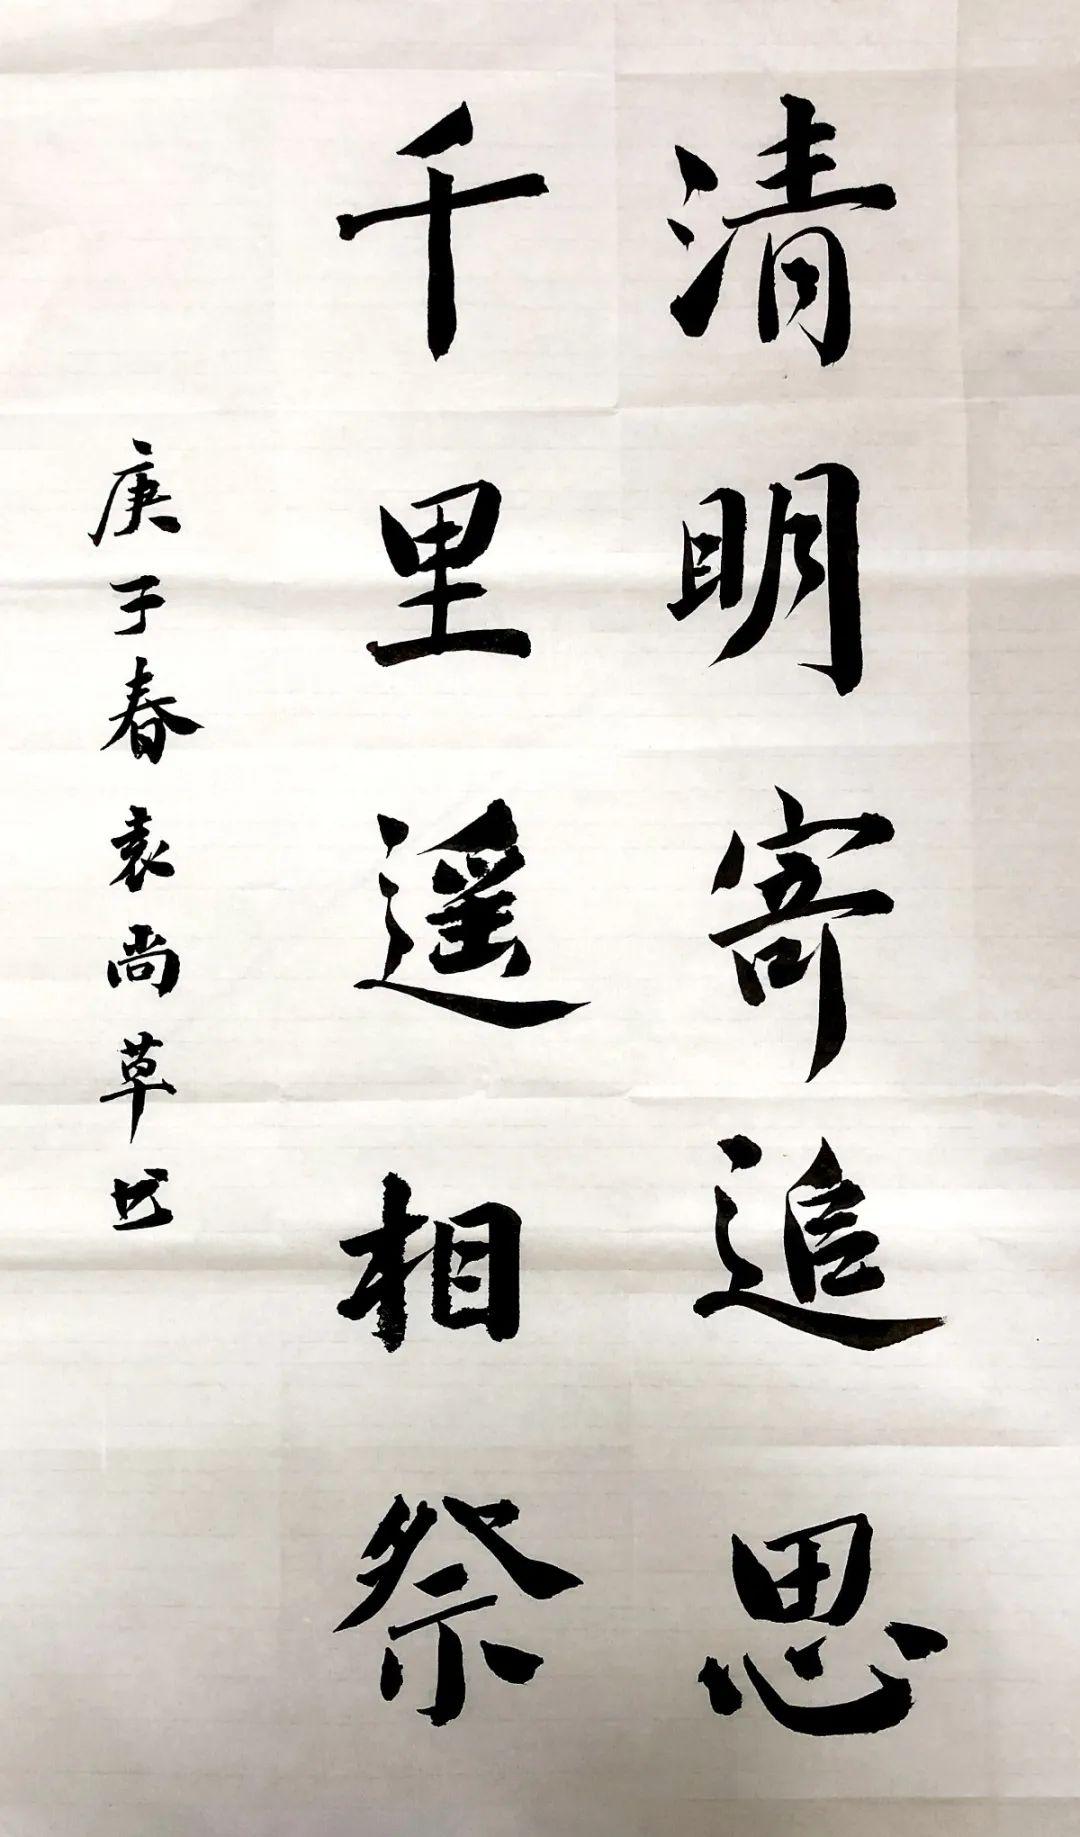 清明寄追思
千里遥相祭
庚子春袁尚草书